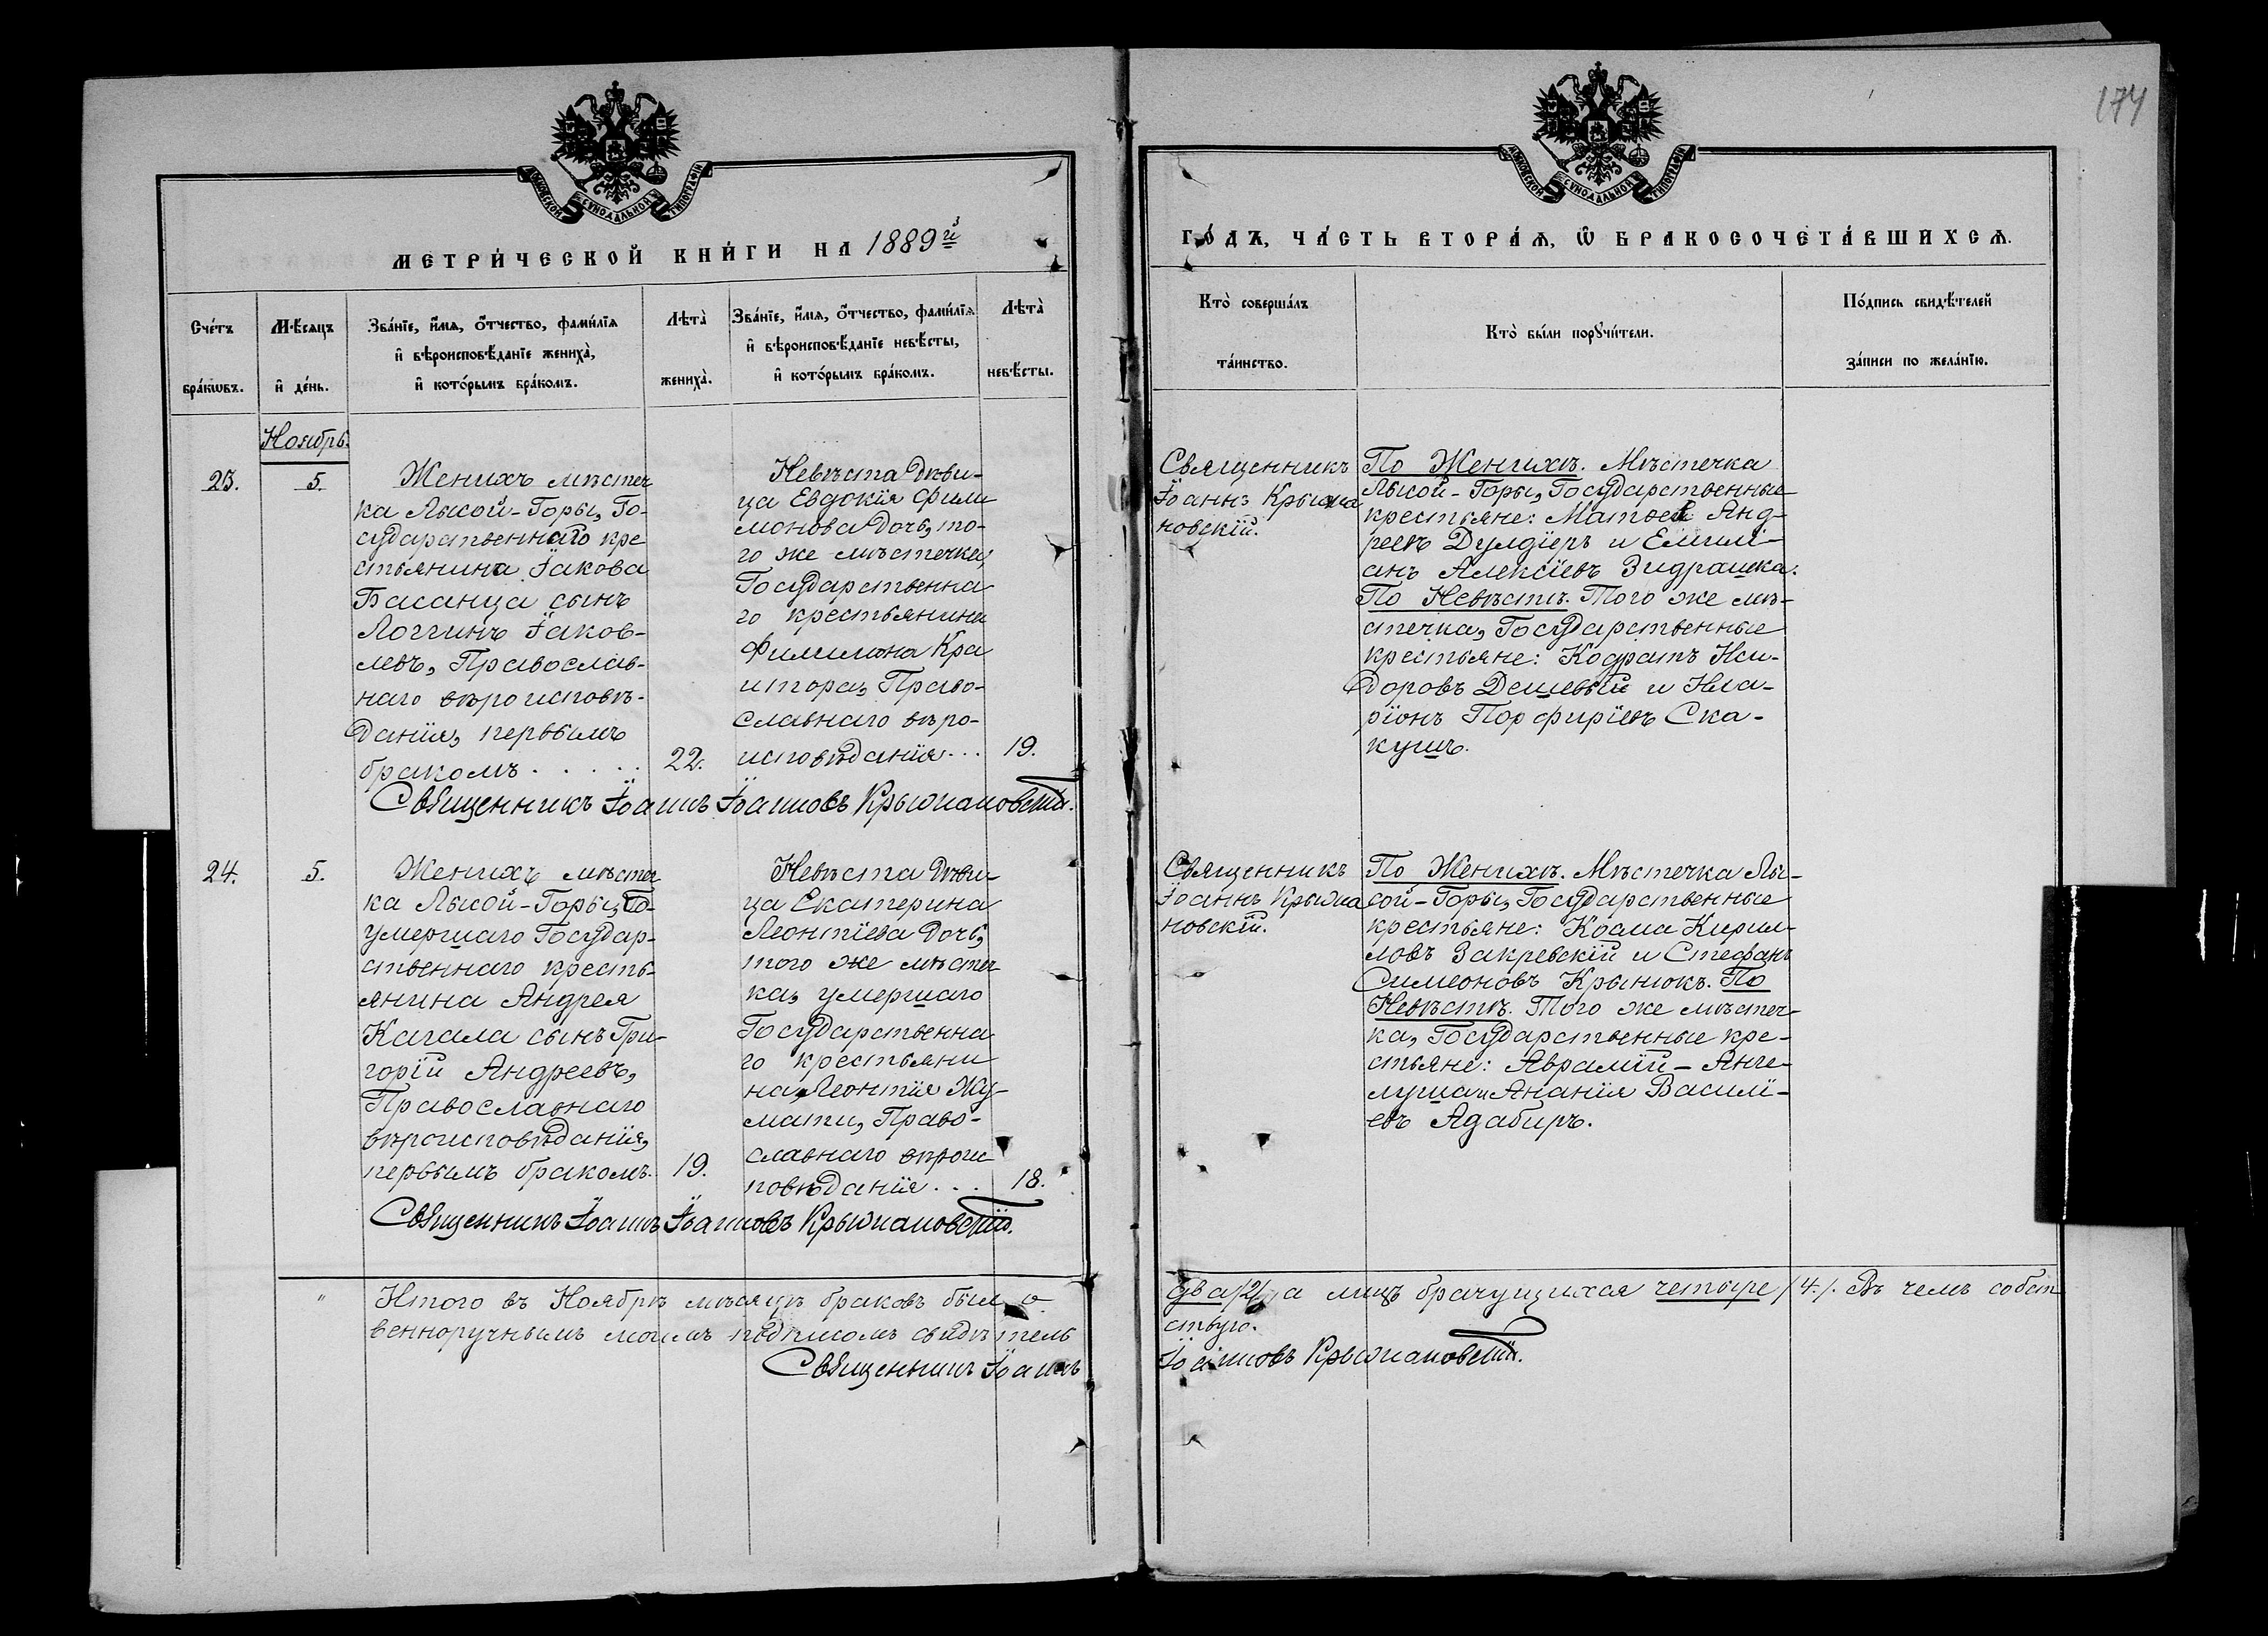 174
МОСКОВСКОЙ СѴНОДАЛЬНОЙ ТИПОГРАФІИ
МОСКОВСКОЙ СѴНОДАЛЬНОЙ ТИПОГРАФІИ
МЕТРИ́ЧЕСКОЙ КНИ́ГИ НА 1889й
ГО́ДЪ, ЧА́СТЬ ВТОРА́Я, Ѡ҆ БРАКОСОЧЕТА́ВШИХСЯ.
Сче́тъ
бра́кѡвъ.
Мѣ́сяцъ
и҆ де́нь.
Зва́нїе, и҆́мя, ѻ҆́тчество, фами́лїя
и҆ вѣроисповѣ́данїе жениха̀,
и҆ кото́рымъ бра́комъ.
Лѣта̀
жениха̀.
Зва́нїе, и҆́мя, ѻ҆́тчество, фами́лїя
и҆ вѣроисповѣ́данїе невѣ́сты,
и҆ кото́рымъ бра́комъ.
Лѣта̀
невѣ́сты.
Кто̀ соверша́лъ
та́инство.
Кто̀ бы́ли порꙋчи́тели.
По́дпись свидѣ́телей
за́писи по жела́нїю.
Ноябрь.
23.
5.
Женихъ мѣстеч
ка Лысой-Горы, Го-
сударственнаго кре
стьянина Іакова
Басанца сынъ
Логгинъ Іаков-
левъ, Православ-
наго вѣроисповѣ-
данія, первымъ
бракомъ . . . . .
22.
Невѣста Дѣви-
ца Евдокія Фили
монова Дочь, то-
го же мѣстечка,
Государственна
го крестьянина
Филимона Кра
итора, Право-
славнаго вѣро-
исповѣданія . . .
19.
Священникъ Іоаннъ Іоанновъ Крыжановскій.
Священникъ
Іоаннъ Крыжа
новскій.
По Женихѣ. Мѣстечка
Лысой-Горы, Государственные
крестьяне: Матвей Анд-
реевъ Дулдіеръ и Емили-
анъ Алексіевъ Зидрашка.
По Невѣстѣ. Того же мѣ-
стечка, Государственные
крестьяне: Кодратъ Иси-
доровъ Дешевый и Ила-
ріонъ Порфиріевъ Ска-
кушъ.
24.
5.
Женихъ мѣстеч
ка Лысой-Горы,
умершаго Государ-
ственнаго кресть-
янина Андрея
Кагала сынъ Гри-
горій Андреевъ,
Православнаго
вѣроисповѣданія,
первымъ бракомъ.
19.
Невѣста Дѣви-
ца Екатерина
Леонтіева Дочь,
того же мѣстеч
ка, умершаго
Государственна
го крестьяни
на, Леонтія Жу-
мати, Право-
славнаго вѣрои
повѣданія . . .
18.
Священникъ Іоаннъ Іоанновъ Крыжановскій.
Священникъ
Іоаннъ Крыжа
новскій.
По Женихѣ. Мѣстечка Лы-
сой-Горы, Государственные
крестьяне: Косма Кирил-
ловъ Закревскій и Стефанъ
Симеоновъ Крынюкъ. По
Невѣстѣ. Того же мѣстеч-
ка, Государственные кре-
стьяне: Аврамій - Анге-
луша и Ананія Василі-
евъ Адабиръ.
" Итого въ Ноябрѣ мѣсяцѣ браковъ было два /2/, а лицъ брачущихся четыре /4./. Въ чемъ собст
венноручнымъ моимъ подписомъ свидѣтель ствую.
Священникъ Іоаннъ Іоанновъ Крыжановскій.